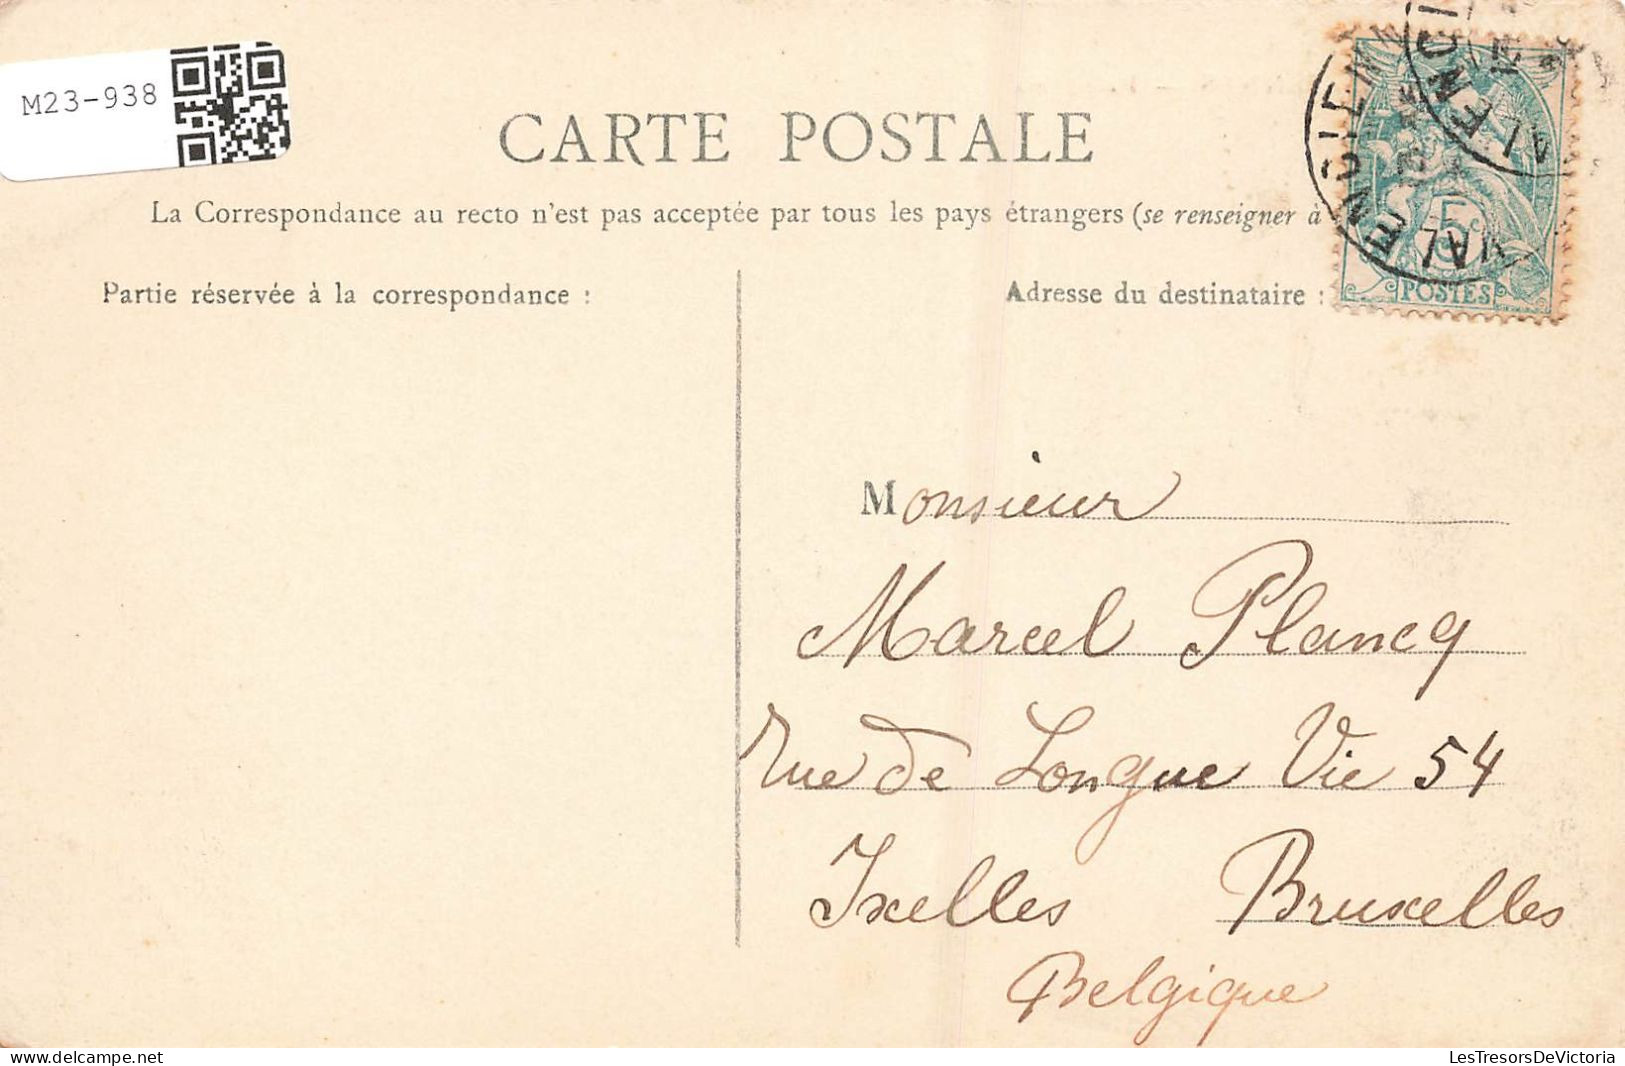 M23-938
CARTE POSTALE
La Correspondance au recto n'est pas acceptée par tous les pays étrangers (se renseigner à
Partie réservée à la correspondance :
Adresse du destinataire :
5c
POSTES
VALENCIENNE
VALENCI
Monsieur
Marcel Plancq
Rue de Longue Vie 54
Ixelles Bruxelles
Belgique
LesTresorsDeVictoria